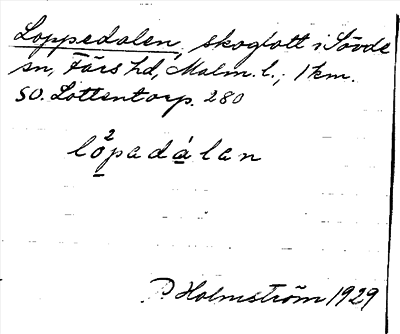 Loppedalen, skoglott i Sövde
sn, Färs hd, Malm. l.; 1 km.
SO. Lottentorp. 280
lo²padálan
P Holmström 1929